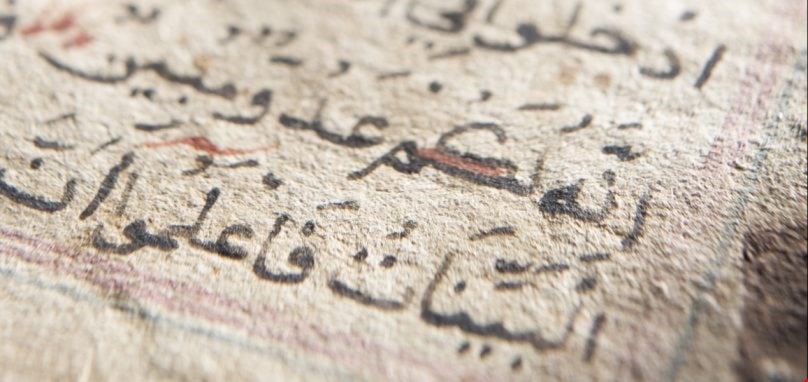 ادخلوا في
إنه لكم عدو مبين
البينات فاعلموا أن